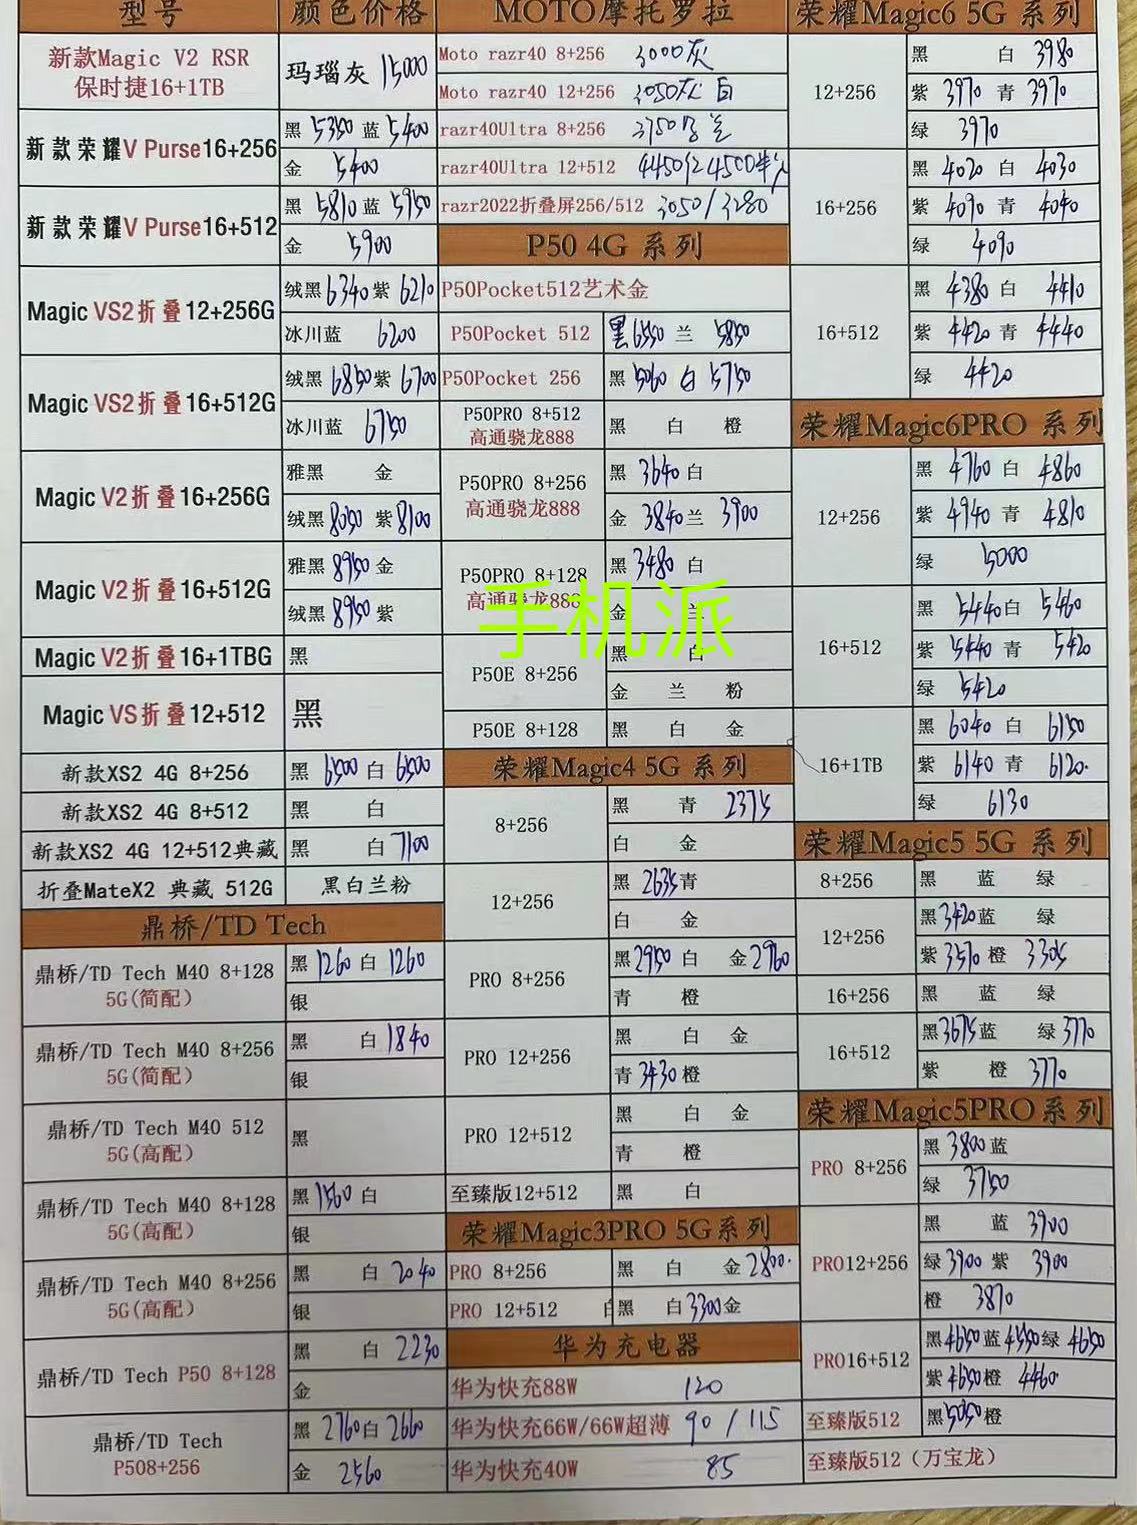 型号 颜色价格
新款Magic V2 RSR
保时捷16+1TB
玛瑙灰 15000
新款荣耀V Purse16+256
黑 5350 蓝 5400
金 5400
新款荣耀V Purse16+512
黑 5810 蓝 5950
金 5900
Magic VS2折叠12+256G
绒黑 6340 紫 6210
冰川蓝 6200
Magic VS2折叠16+512G
绒黑 6850 紫 6700
冰川蓝 6750
Magic V2折叠16+256G
雅黑 金
绒黑 8050 紫 8100
Magic V2折叠16+512G
雅黑 8950 金
绒黑 8950 紫
Magic V2折叠16+1TBG
黑
Magic VS折叠12+512
黑
新款XS2 4G 8+256
黑 6500 白 6500
新款XS2 4G 8+512
黑 白
新款XS2 4G 12+512典藏
黑 白 7100
折叠MateX2 典藏 512G
黑白兰粉
鼎桥/TD Tech
鼎桥/TD Tech M40 8+128
5G(简配)
黑 1260 白 1260
银
鼎桥/TD Tech M40 8+256
5G(简配)
黑 白 1840
银
鼎桥/TD Tech M40 512
5G(高配)
黑
鼎桥/TD Tech M40 8+128
5G(高配)
黑 1560 白
银
鼎桥/TD Tech M40 8+256
5G(高配)
黑 白 2040
银
鼎桥/TD Tech P50 8+128
黑 白 2230
金
鼎桥/TD Tech
P508+256
黑 2760 白 2660
金 2560
MOTO摩托罗拉
Moto razr40 8+256 3000灰
Moto razr40 12+256 3050灰 白
razr40Ultra 8+256 3750
razr40Ultra 12+512 4450红 4500
razr2022折叠屏256/512 3050/3280
P50 4G 系列
P50Pocket512艺术金
P50Pocket 512 黑 6550 兰 5850
P50Pocket 256 黑 5060 白 5750
P50PRO 8+512
高通骁龙888
黑 白 橙
P50PRO 8+256
高通骁龙888
黑 3640 白
金 3840 兰 3900
P50PRO 8+128
高通骁龙888
黑 3480 白
金 兰
手机派
P50E 8+256
黑 白
金 兰 粉
P50E 8+128
黑 白 金
荣耀Magic4 5G 系列
8+256
黑 青 2375
白 金
12+256
黑 2635 青
白 金
PRO 8+256
黑 2950 白 金 2960
青 橙
PRO 12+256
黑 白 金
青 3430 橙
PRO 12+512
黑 白 金
青 橙
至臻版12+512
黑 白
荣耀Magic3PRO 5G系列
PRO 8+256 黑 白 金 2800.
PRO 12+512 黑 白 3300 金
华为充电器
华为快充88W 120
华为快充66W/66W超薄 90 / 115
华为快充40W 85
荣耀Magic6 5G 系列
12+256
黑 白 3980
紫 3970 青 3970
绿 3970
16+256
黑 4020 白 4030
紫 4090 青 4040
绿 4090
16+512
黑 4380 白 4410
紫 4420 青 4440
绿 4420
荣耀Magic6PRO 系列
12+256
黑 4760 白 4860
紫 4940 青 4810
绿 5000
16+512
黑 5440 白 5460
紫 5440 青 5420
绿 5420
16+1TB
黑 6040 白 6150
紫 6140 青 6120.
绿 6130
荣耀Magic5 5G 系列
8+256
黑 蓝 绿
12+256
黑 3420 蓝 绿
紫 3570 橙 3305
16+256
黑 蓝 绿
16+512
黑 3675 蓝 绿 3770
紫 橙 3770
荣耀Magic5PRO系列
PRO 8+256
黑 3800 蓝
绿 3750
PRO12+256
黑 蓝 3900
绿 3900 紫 3900
橙 3870
PRO16+512
黑 4650 蓝 4550 绿 4650
紫 4650 橙 4460.
至臻版512
黑 5050 橙
至臻版512（万宝龙）